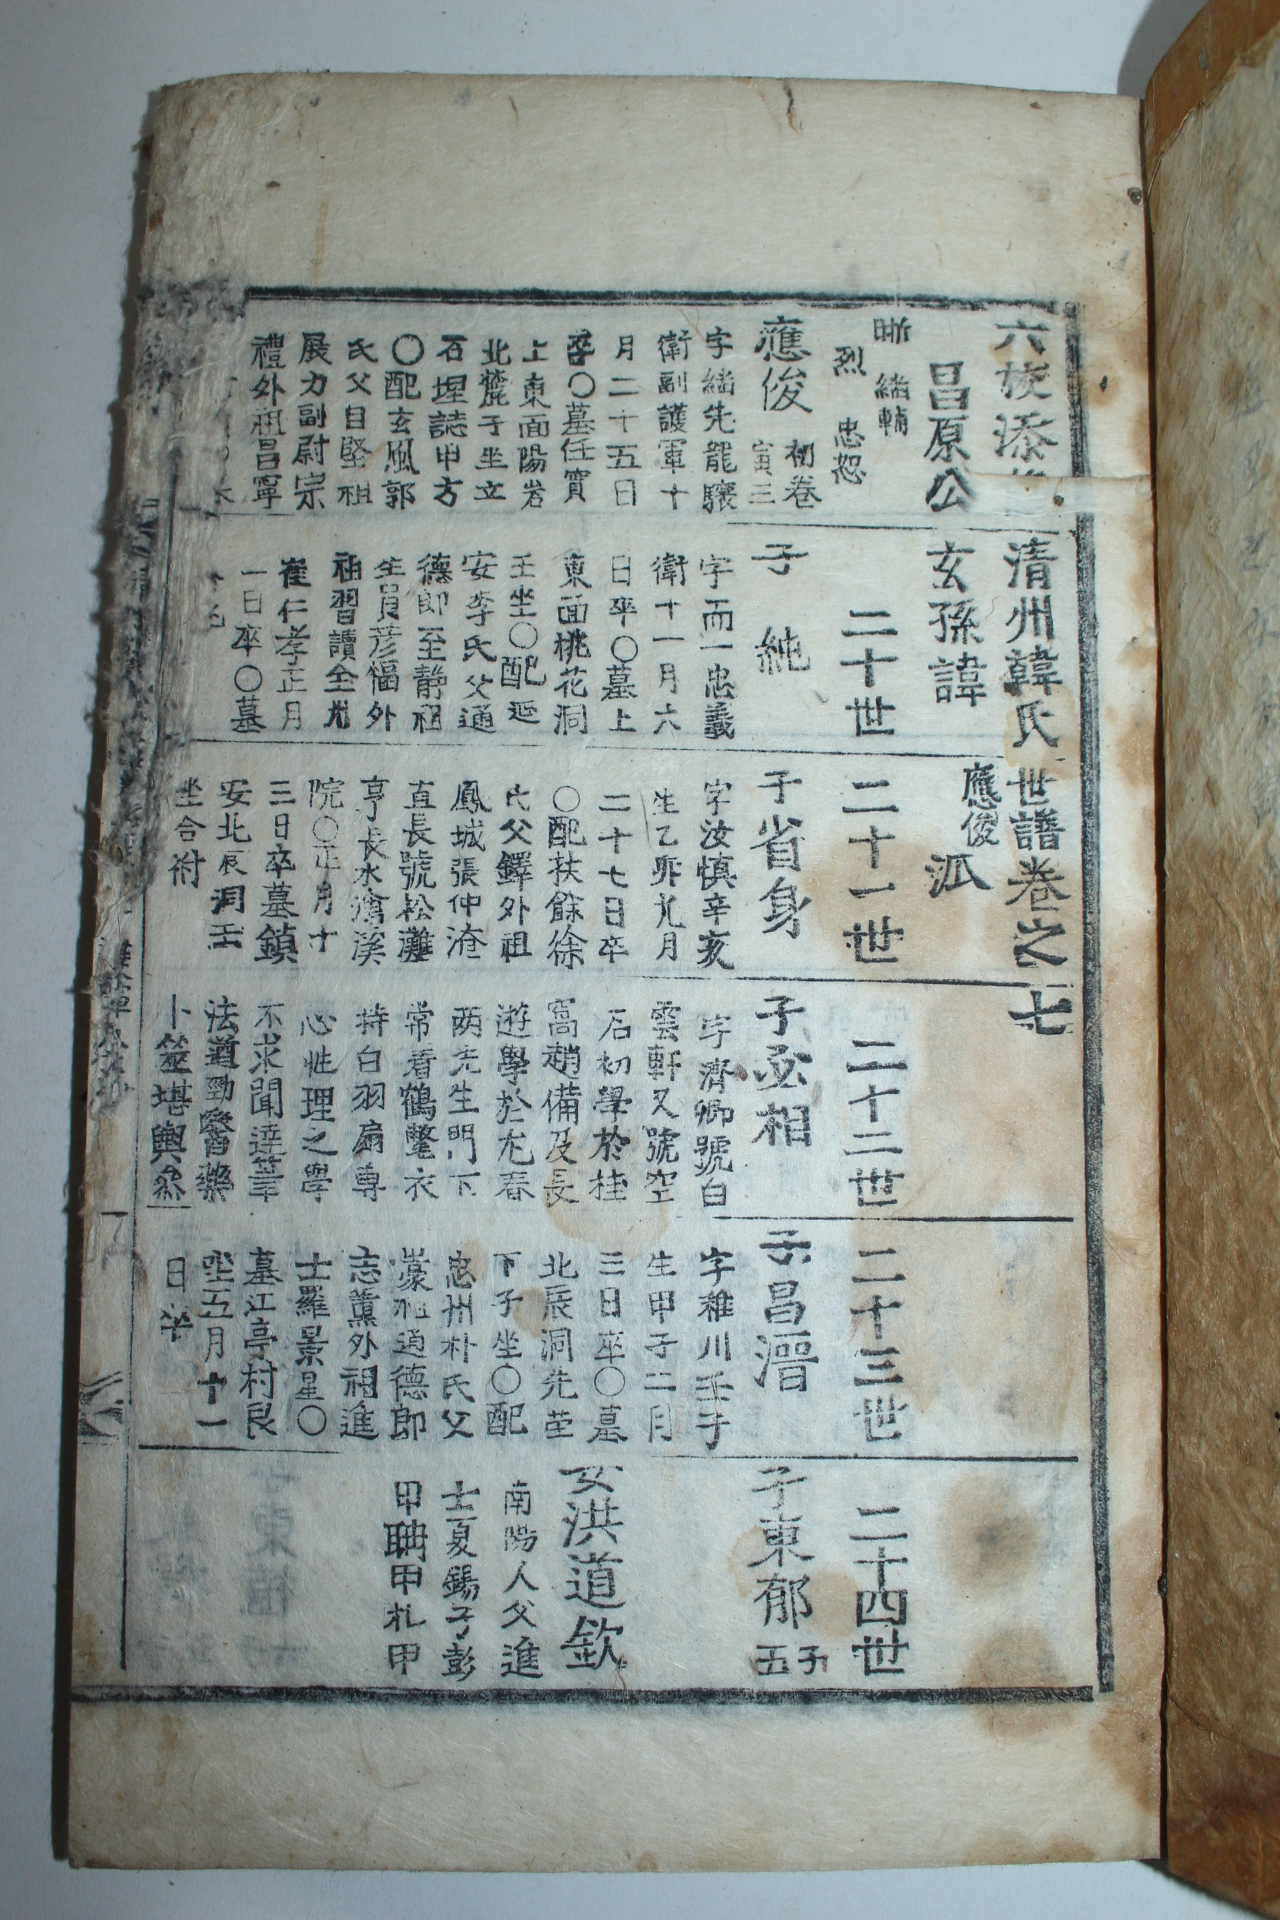 六校添
清州韓氏世譜卷之七
昌原公
玄孫諱應俊
派
晰 緒輔
烈 忠恕
二十世
二十一世
二十二世
二十三世
二十四世
應俊 初卷
寅三
字緒先龍驤
衛副護軍十
月二十五日
卒〇墓任實
上東面陽岩
北麓子坐立
石埋誌甲方
〇配玄風郭
氏父自堅祖
展力副尉宗
禮外祖昌寧
子純
字而一忠義
衛十一月六
日卒〇墓上
東面桃花洞
壬坐〇配延
安李氏父通
德郎至靜祖
生員彦福外
祖習讀全州
崔仁孝正月
一日卒〇墓
子省身
字汝愼辛亥
生乙卯九月
二十七日卒
〇配扶餘徐
氏父鐸外祖
鳳城張仲淹
直長號松灘
享長水滄溪
院〇正月十
三日卒墓鎭
安北辰洞壬
坐合祔
子必相
字濟卿號白
雲軒又號空
石初學於桂
窩趙備及長
遊學於尤春
两先生門下
常着鶴氅衣
持白羽扇專
心性理之學
不求聞達筆
法遒勁醫藥
卜筮堪輿
子昌溍
字稚川壬子
生甲子二月
三日卒〇墓
北辰洞先茔
下子坐〇配
忠州朴氏父
蒙祖通德郎
志薰外祖進
士羅景星〇
墓江亭村艮
坐五月十一
日卒
子東郁 子
五
女洪道欽
南陽人父進
士夏錫子彭
甲聃甲札甲